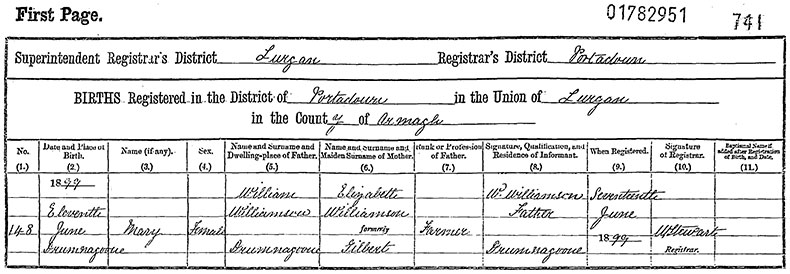 First Page. 01782951 741
Superintendent Registrar's District Lurgan Registrar's District Portadown
BIRTHS Registered in the District of Portadown in the Union of Lurgan
in the County of Armagh
No. Date and Place of Birth. Name (if any). Sex. Name and Surname and Dwelling-place of Father. Name and Surname and Maiden Surname of Mother. Rank or Profession of Father. Signature, Qualification, and Residence of Informant. When Registered. Signature of Registrar. Baptismal Name if added after Registration of Birth, and Date.
(1.) (2.) (3.) (4.) (5.) (6.) (7.) (8.) (9.) (10.) (11.)
1899 William Elizabeth Wm Williamson Seventeenth
Eleventh Williamson Williamson Father June
148 June Mary Female formerly Farmer 1899 W Stewart
Drumnagoone Drumnagoone Gilbert Drumnagoone Registrar.